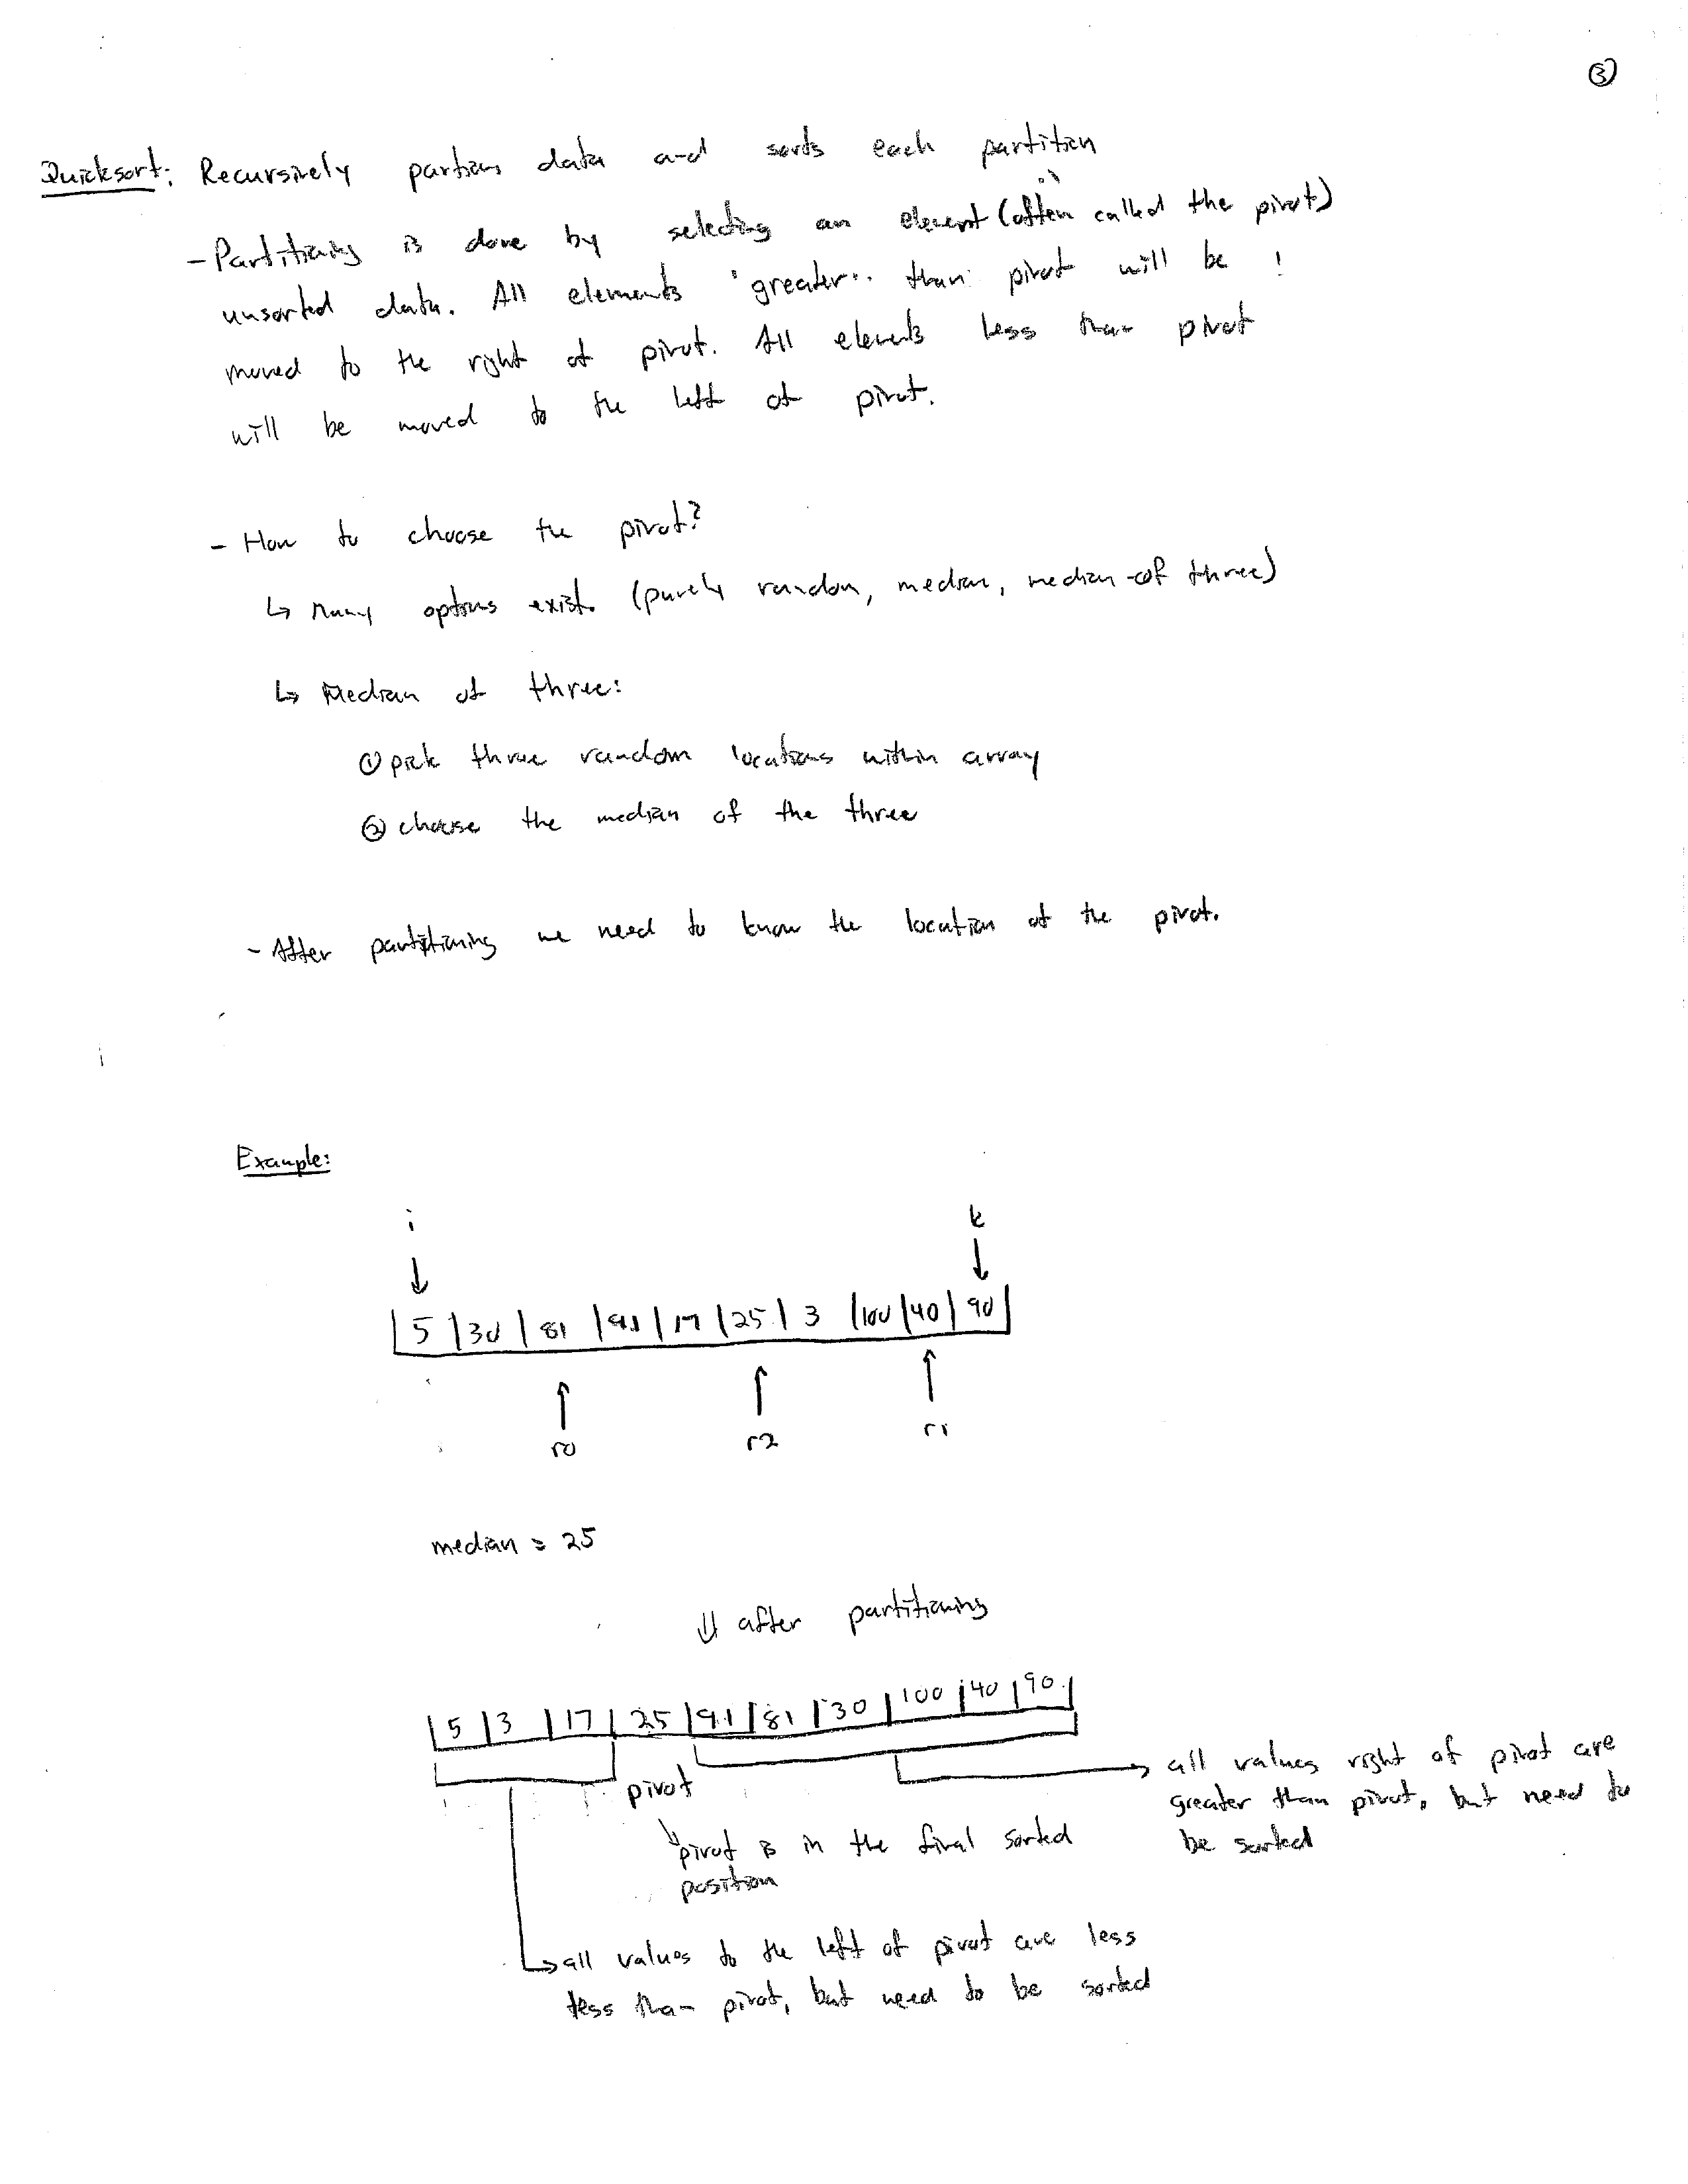 ③
Quicksort: Recursively partions data and sorts each partition
- Partitioning is done by selecting an element (often called the pivot)
unsorted data. All elements greater than pivot will be
moved to the right of pivot. All elements less than pivot
will be moved to the left of pivot.
- How to choose the pivot?
↳ Many options exist. (purely random, median, median-of three)
↳ Median of three:
① pick three random locations within array
② choose the median of the three
- After partitioning we need to know the location of the pivot.
Example:
i k
5 | 30 | 81 | 91 | 17 | 25 | 3 | 100 | 40 | 90
r0 r2 r1
median = 25
⇓ after partitioning
5 | 3 | 17 | 25 | 91 | 81 | 30 | 100 | 40 | 90
pivot
→ all values right of pivot are
greater than pivot, but need to
be sorted
pivot is in the final sorted
position
↳ all values to the left of pivot are less
less than pivot, but need to be sorted